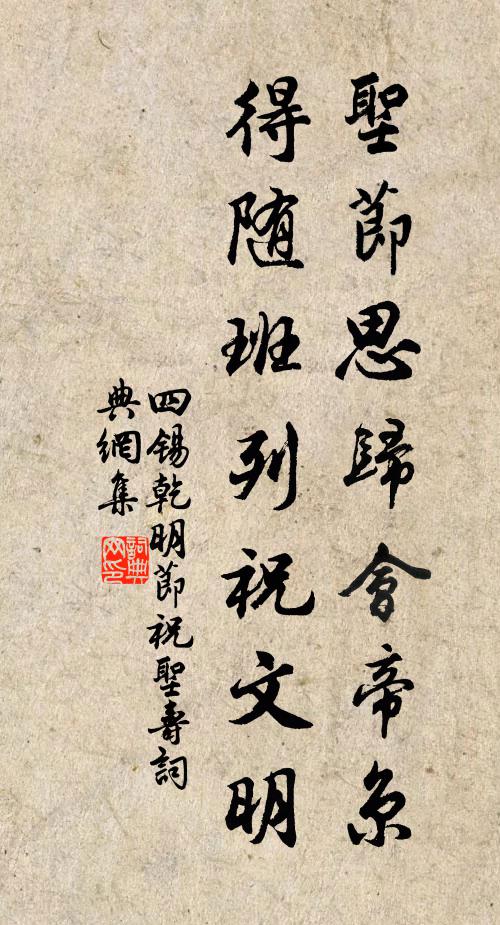 聖節思歸會帝京
得随班列祝文明
四錫乾明節祝聖壽詞
典網集
詞典网印